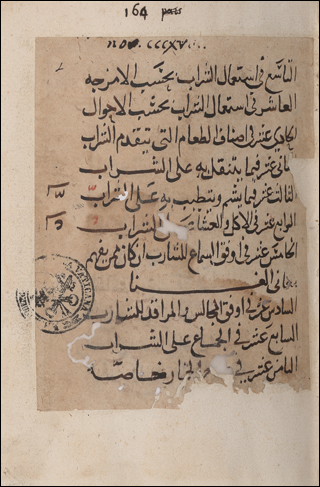 164
التاسع في استعمال الشراب بحسب الامزجه
العاشر في استعمال الشراب بحسب الاحوال
الحادي عشر في اصناف الطعام التي تتقدم الشراب
ثاني عشر فيما يتنقل به على الشراب
الثالث عشر فيما يشم ويتطيب به على الشراب
الرابع عشر في الاكل والعشا على الشراب
الخامس عشر في اوفق السماع للشارب ان كان ممن يفهم
معاني الغنا
السادس عشر في اوفق المجالس والمراقد للشارب
السابع عشر في الجماع على الشراب
الثامن عشر في الخمار خاصه